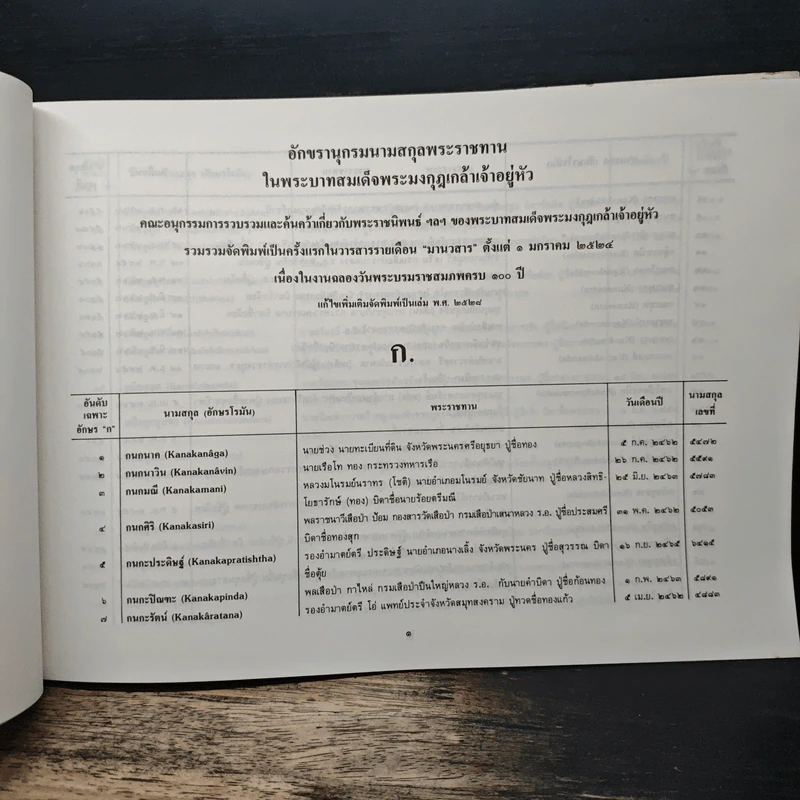 อักขรานุกรมนามสกุลพระราชทาน
ในพระบาทสมเด็จพระมงกุฎเกล้าเจ้าอยู่หัว
คณะอนุกรรมการรวบรวมและค้นคว้าเกี่ยวกับพระราชนิพนธ์ ฯลฯ ของพระบาทสมเด็จพระมงกุฎเกล้าเจ้าอยู่หัว
รวมรวมจัดพิมพ์เป็นครั้งแรกในวารสารรายเดือน "มานวสาร" ตั้งแต่ ๑ มกราคม ๒๕๒๔
เนื่องในงานฉลองวันพระบรมราชสมภพครบ ๑๐๐ ปี
แก้ไขเพิ่มเติมจัดพิมพ์เป็นเล่ม พ.ศ. ๒๕๒๘
ก.
อันดับ เฉพาะ อักษร "ก" นามสกุล (อักษรโรมัน) พระราชทาน วันเดือนปี นามสกุล เลขที่
๑ กนกนาค (Kanakanâga) นายช่วง นายทะเบียนที่ดิน จังหวัดพระนครศรีอยุธยา ปู่ชื่อทอง ๕ ก.ค. ๒๔๖๒ ๕๔๗๒
๒ กนกนาวิน (Kanakanâvin) นายเรือโท ทอง กระทรวงทหารเรือ ๒๖ ก.ค. ๒๔๖๒ ๕๕๙๑
๓ กนกมณี (Kanakamani) หลวงมโนรมย์นราทร (โชติ) นายอำเภอมโนรมย์ จังหวัดชัยนาท ปู่ชื่อหลวงสิทธิ- ๒๕ มิ.ย. ๒๔๖๓ ๕๗๘๓
โยธารักษ์ (ทอง) บิดาชื่อนายร้อยตรีมณี
๔ กนกศิริ (Kanakasiri) พลราชนาวีเสือป่า ป้อม กองสารวัดเสือป่า กรมเสือป่าเสนาหลวง ร.อ. ปู่ชื่อประสมศรี ๓๑ พ.ค. ๒๔๖๒ ๕๐๕๓
บิดาชื่อทองสุก
๕ กนกะประดิษฐ์ (Kanakapratishtha) รองอำมาตย์ตรี ประดิษฐ์ นายอำเภอนางเลิ้ง จังหวัดพระนคร ปู่ชื่อสุวรรณ บิดา ๑๖ ก.ย. ๒๔๖๕ ๖๔๑๕
ชื่อตุ้ย
๖ กนกะปิณฑะ (Kanakapinda) พลเสือป่า กาไหล่ กรมเสือป่าปืนใหญ่หลวง ร.อ. กับนายคำบิดา ปู่ชื่อก้อนทอง ๑ ก.พ. ๒๔๖๓ ๕๘๙๑
๗ กนกะรัตน์ (Kanakâratana) รองอำมาตย์ตรี โอ่ แพทย์ประจำจังหวัดสมุทสงคราม ปู่ทวดชื่อทองแก้ว ๕ เม.ย. ๒๔๖๒ ๔๘๘๓
๑